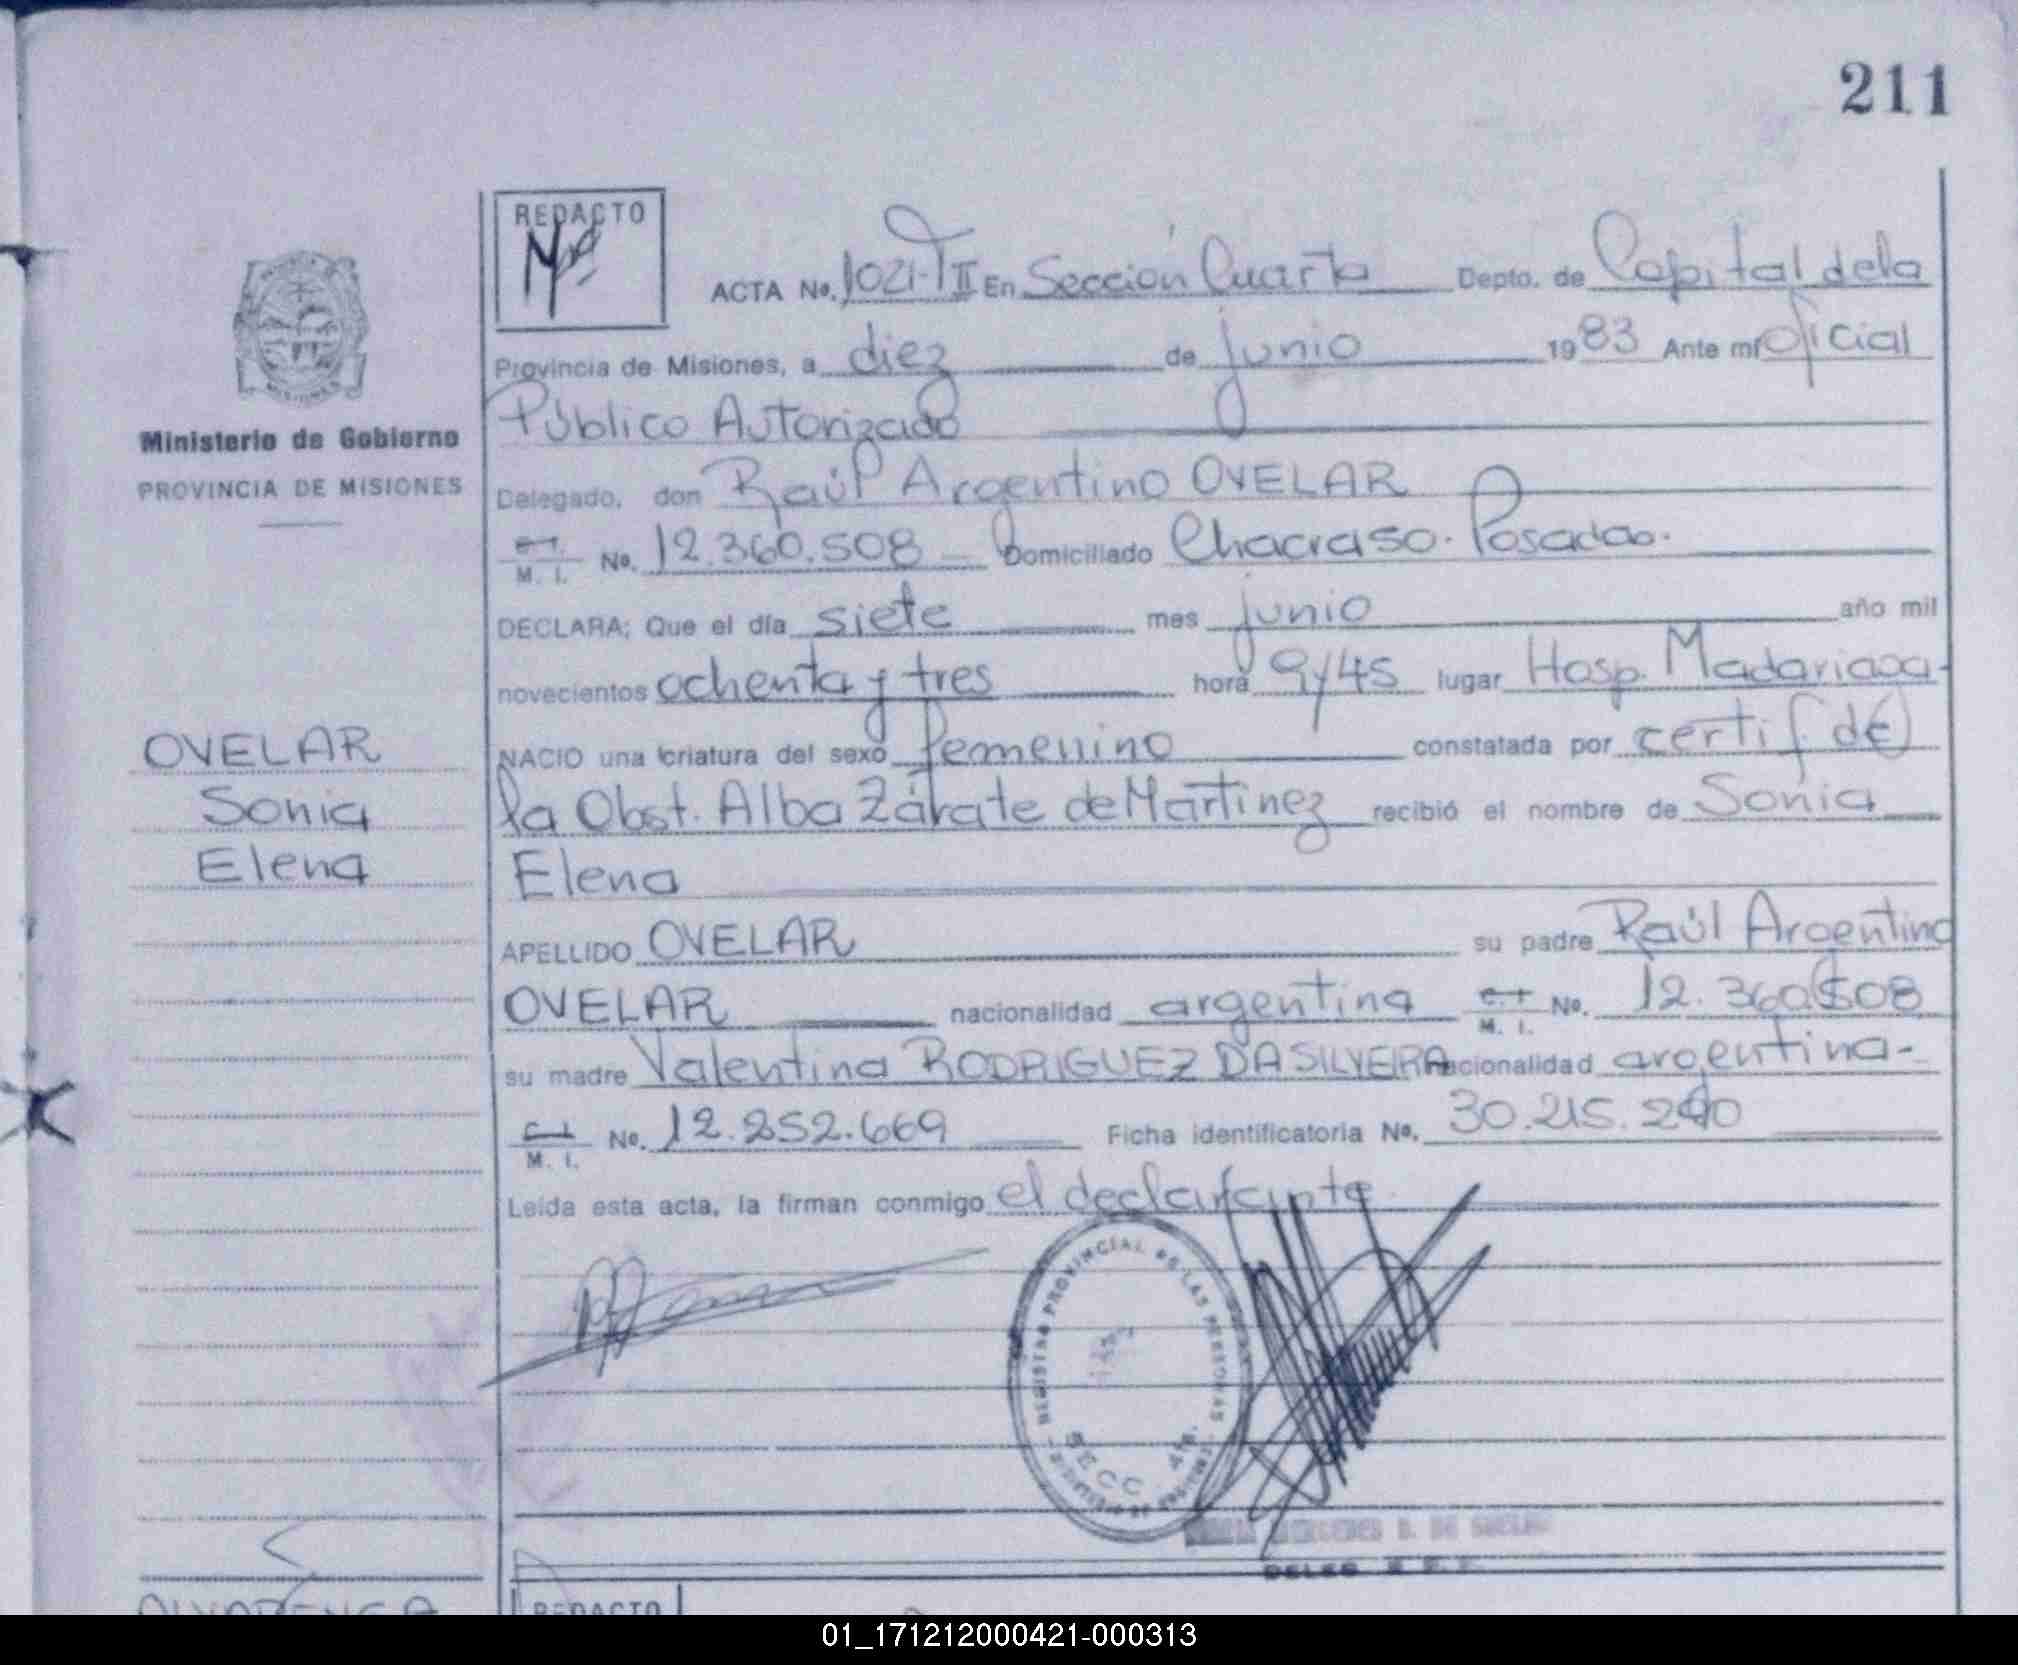 211
REDACTO
ACTA No. 1021-TII En Sección Cuarta Depto. de Capital de la
Provincia de Misiones, a diez de junio 1983 Ante mí oficial
Ministerio de Gobierno
Público Autorizado
PROVINCIA DE MISIONES
Delegado, don Raúl Argentino OVELAR
C.I. M. I. No. 12.360.508 Domiciliado Chacra 50. Posadas.
DECLARA; Que el día siete mes junio año mil
novecientos ochenta y tres hora 9y45 lugar Hosp. Madariaga
OVELAR
NACIO una criatura del sexo femenino constatada por certif. de
Sonia
la Obst. Alba Zárate de Martinez recibió el nombre de Sonia
Elena
Elena
APELLIDO OVELAR su padre Raúl Argentino
OVELAR nacionalidad argentina C.I. M. I. No. 12.360.508
su madre Valentina RODRIGUEZ DA SILVEIRA nacionalidad argentina-
C.I. M. I. No. 12.252.669 Ficha identificatoria No. 30.215.240
Leida esta acta, la firman conmigo el declarante
REGISTRO PROVINCIAL DE LAS PERSONAS
SECC. 4ta.
MERCEDES B. DE
REDACTO
01_171212000421-000313